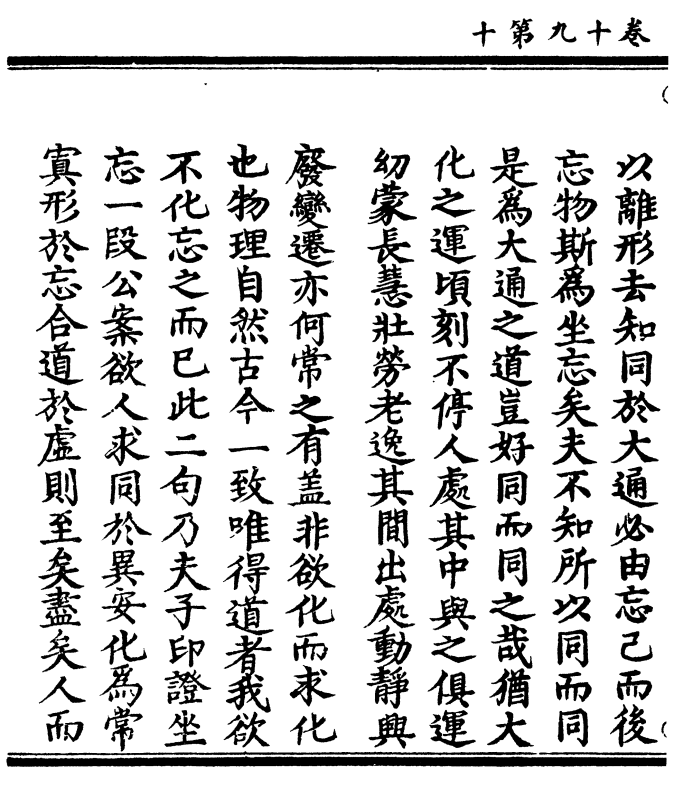 卷十九第十
以離形去知同於大通必由忘己而後
忘物斯爲坐忘矣夫不知所以同而同
是爲大通之道豈好同而同之哉猶大
化之運頃刻不停人處其中與之俱運
幼蒙長慧壯勞老逸其間出處動靜興
廢變遷亦何常之有盖非欲化而求化
也物理自然古今一致唯得道者我欲
不化忘之而巳此二句乃夫子印證坐
忘一段公案欲人求同於異安化爲常
寘形於忘合道於虛則至矣盡矣人而